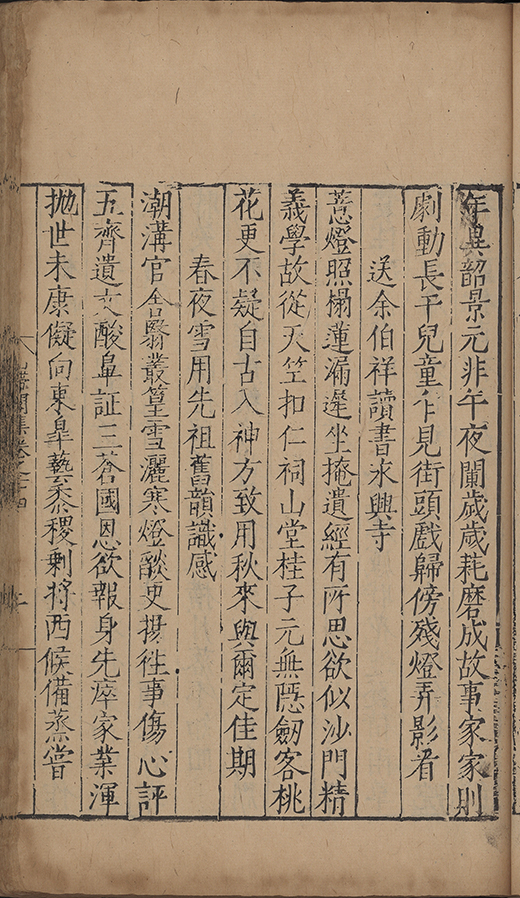 年異韶景元非午夜闌歲歲耗磨成故事家家則
劇動長干兒童乍見街頭戲歸傍殘燈弄影看
送余伯祥讀書永興寺
慧燈照榻蓮漏遲坐掩遺經有所思欲似沙門精
義學故從天竺扣仁祠山堂桂子元無隱劒客桃
花更不疑自古入神方致用秋來與爾定佳期
春夜雪用先祖舊韻識感
潮溝官舍翳叢篁雪灑寒燈燄更揚徃事傷心評
五齊遺文酸鼻証三蒼國恩欲報身先瘁家業渾
拋世未康儗向東臯藝黍稷剰將西候備蒸嘗
集卷之十四